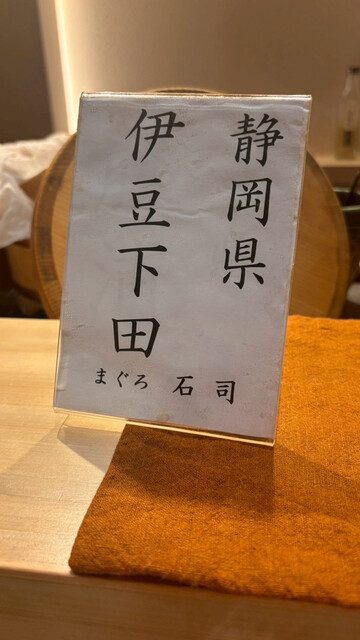 静岡県
伊豆下田
まぐろ 石司